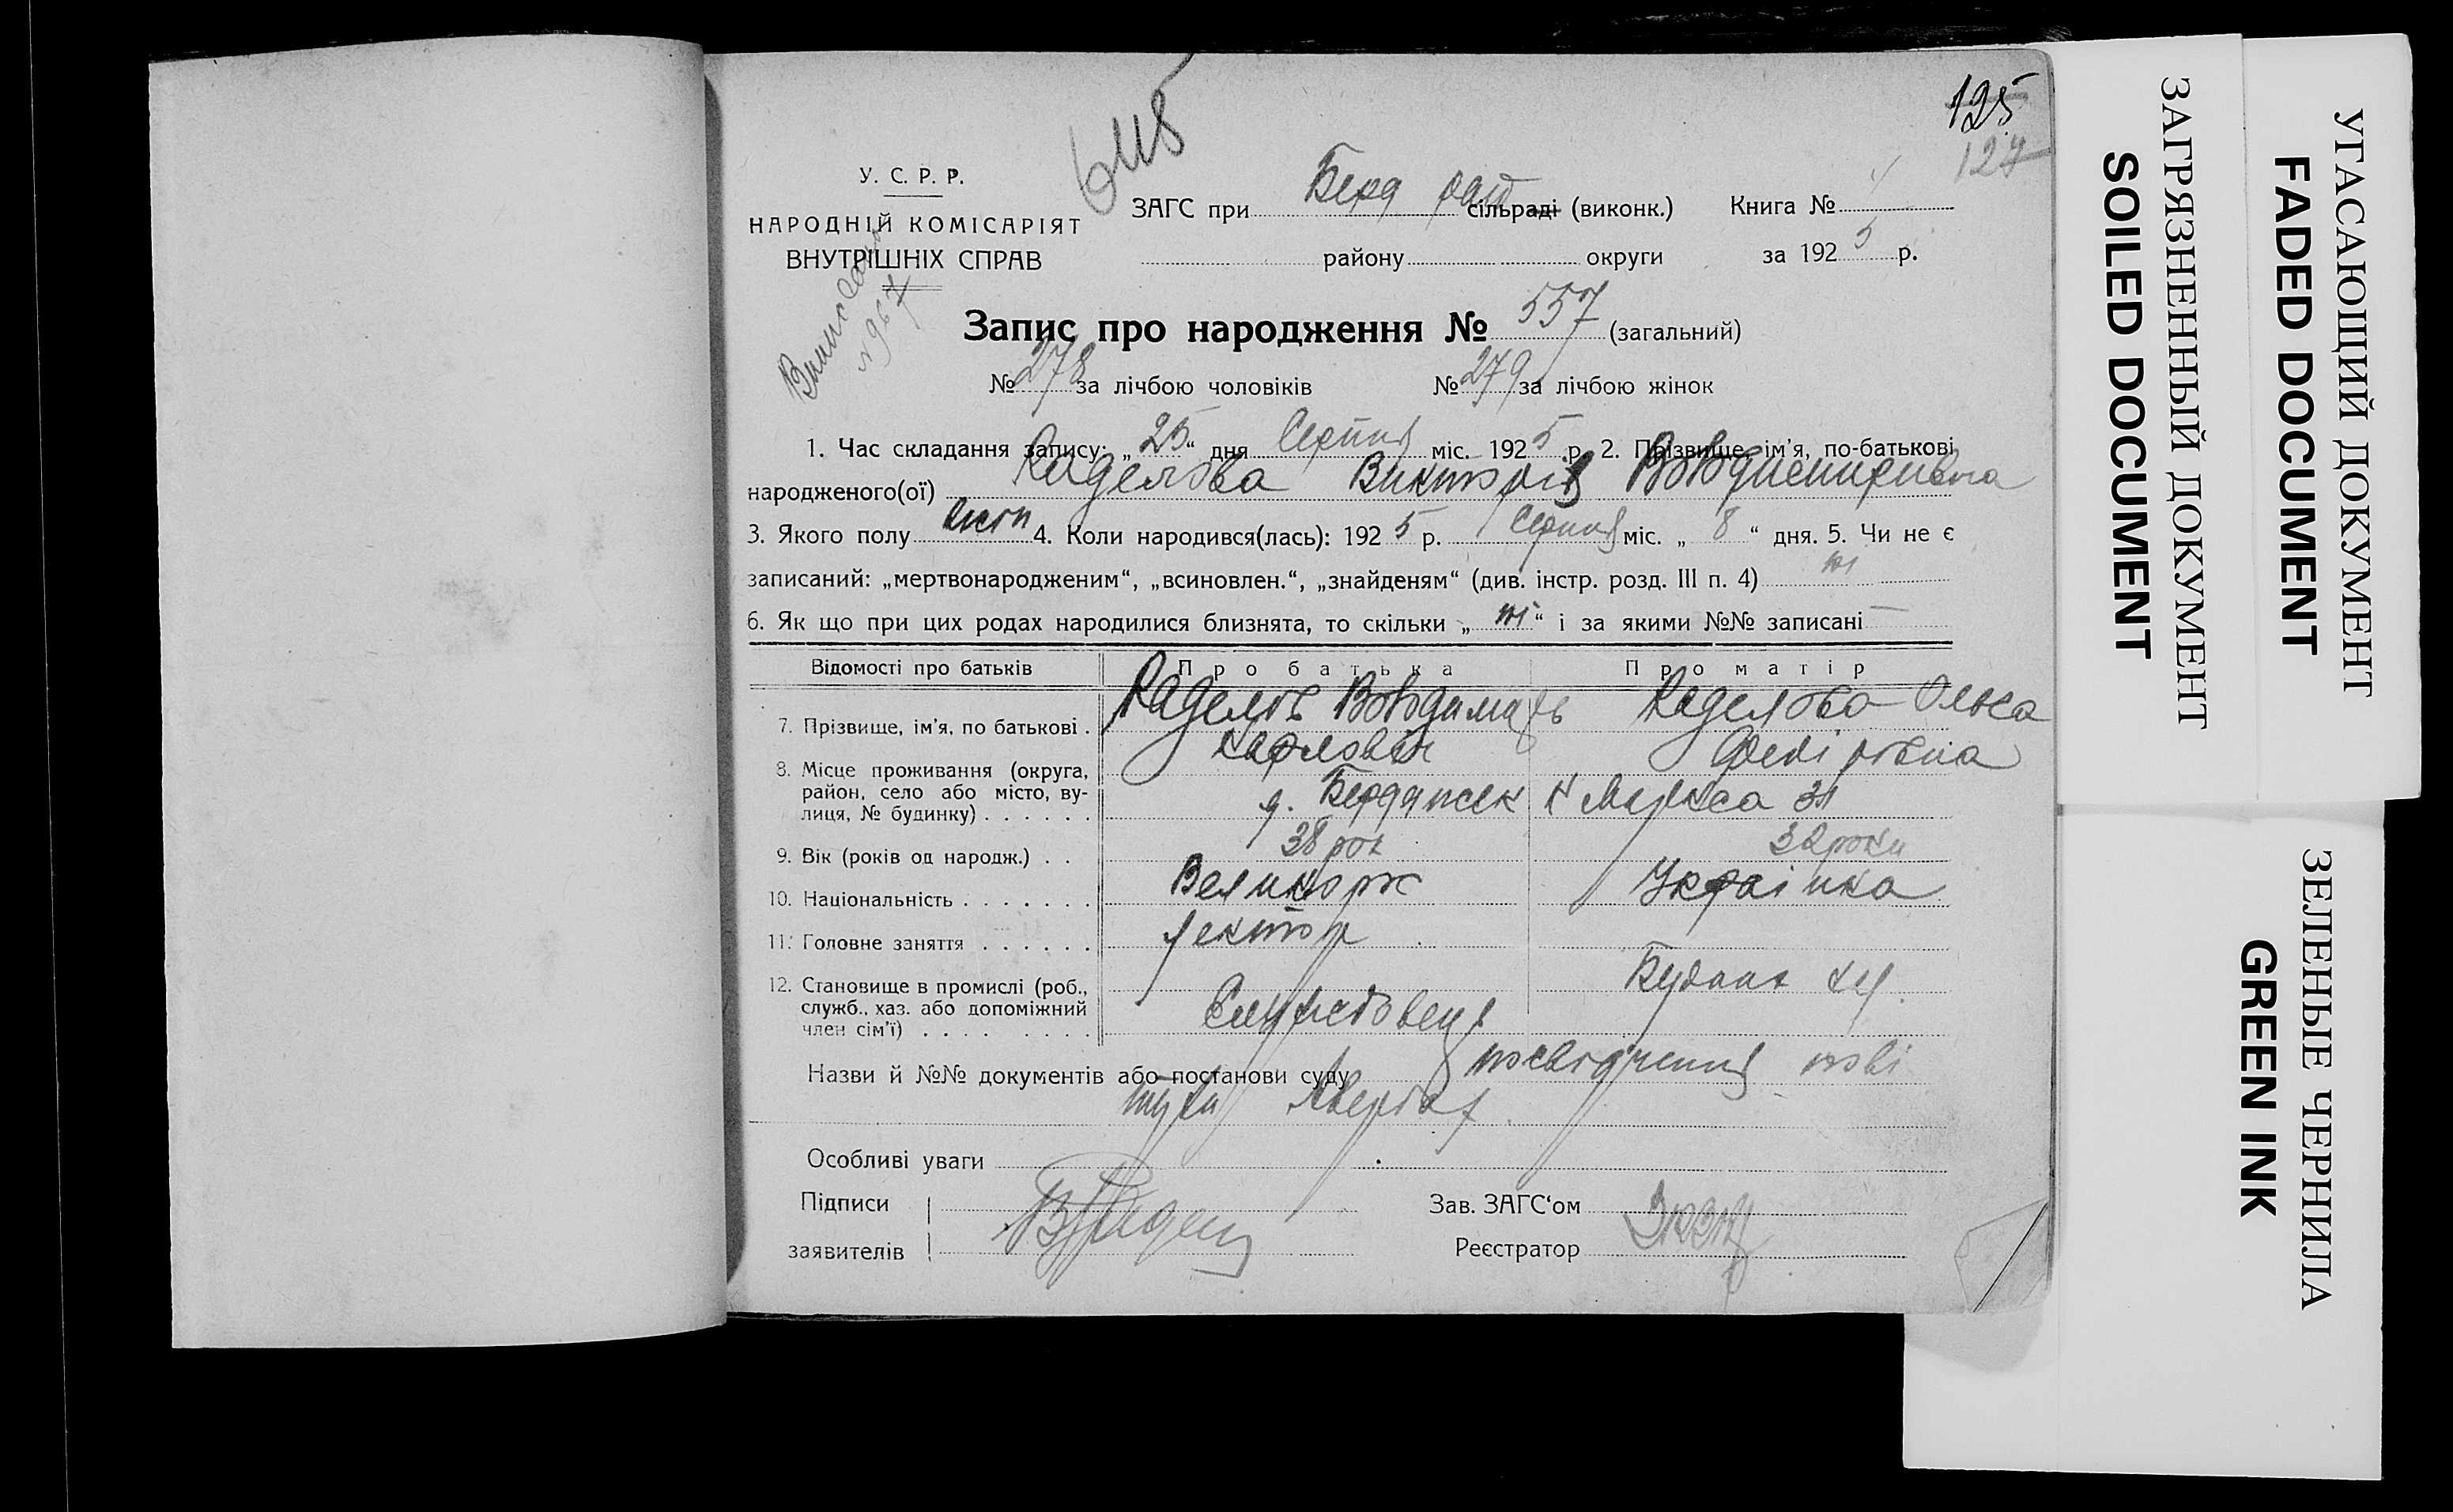 125
127
У. С. Р. Р.
НАРОДНІЙ КОМІСАРІЯТ
ВНУТРІШНІХ СПРАВ
ЗАГС при Берд рай сільраді (виконк.) Книга №
району округи за 1925 р.
Запис про народження № 557 (загальний)
№ 278 за лічбою чоловіків № 279 за лічбою жінок
1. Час складання запису: „25“ дня Серпня міс. 1925 р. 2. Прізвище, ім’я, по-батькові
народженого(ої) Раделова Викторія Володимиривна
3. Якого полу жін 4. Коли народився(лась): 1925 р. Серпня міс. „8“ дня. 5. Чи не є
записаний: „мертвонародженим“, „всиновлен.“, „знайденям“ (див. інстр. розд. III п. 4) ні
6. Як що при цих родах народилися близнята, то скільки „ні“ і за якими №№ записані —
Відомості про батьків Про батька Про матір
7. Прізвище, ім’я, по батькові . Раделов Володимиръ Раделова Ольга
Карлович Федорівна
8. Місце проживання (округа,
район, село або місто, ву-
лиця, № будинку) . . . . . . Бердянськ К Маркса 31
9. Вік (років од народж.) . . 38 рок 32 роки
10. Національність . . . . . . . Великорос Українка
11. Головне заняття . . . . . . Лектор
12. Становище в промислі (роб.,
служб., хаз. або допоміжний
член сім’ї) . . . . . . . . Службовець
Назви й №№ документів або постанови суду посвідчення
Особливі уваги
Підписи
заявителів
Зав. ЗАГС‘ом
Реєстратор
УГАСАЮЩИЙ ДОКУМЕНТ
FADED DOCUMENT
ЗАГРЯЗНЕННЫЙ ДОКУМЕНТ
SOILED DOCUMENT
ЗЕЛЕНЫЕ ЧЕРНИЛА
GREEN INK